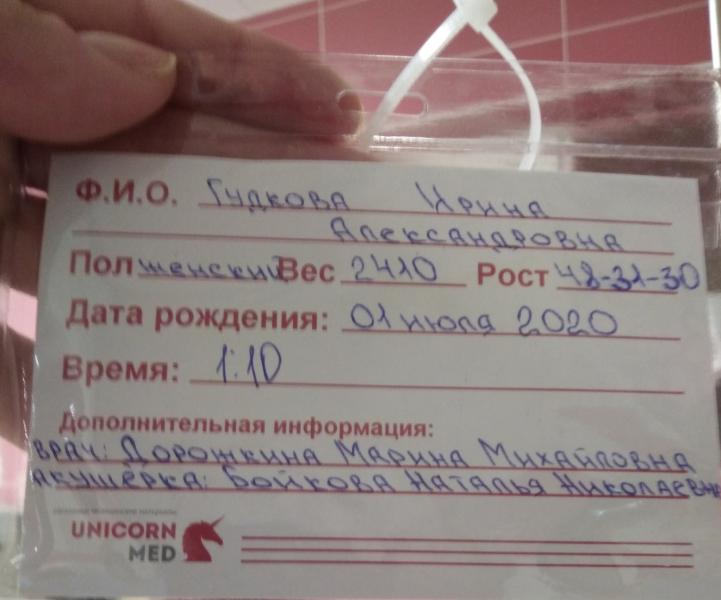 Ф.И.О. Гудкова Ирина
Александровна
Пол женский Вес 2410 Рост 48-31-30
Дата рождения: 01 июля 2020
Время: 1:10
Дополнительная информация:
врач: Дорожкина Марина Михайловна
акушёрка: Бойкова Наталья Николаевна
UNICORN
MED